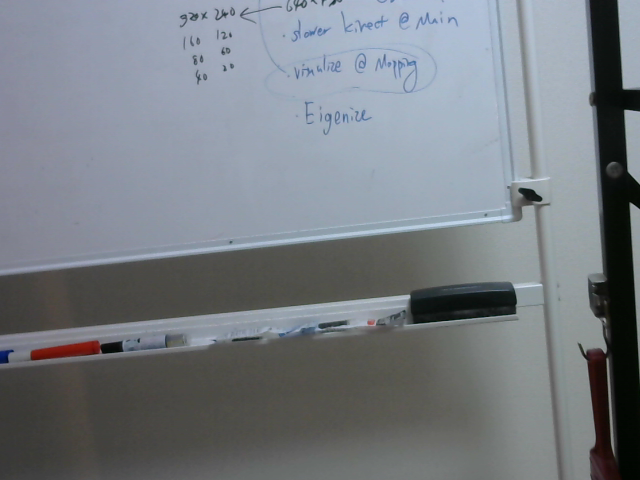 320 x 240 ← 640 x
160 120
80 60
40 20
· slower kinect @ Main
· visualize @ Mapping
· Eigenize